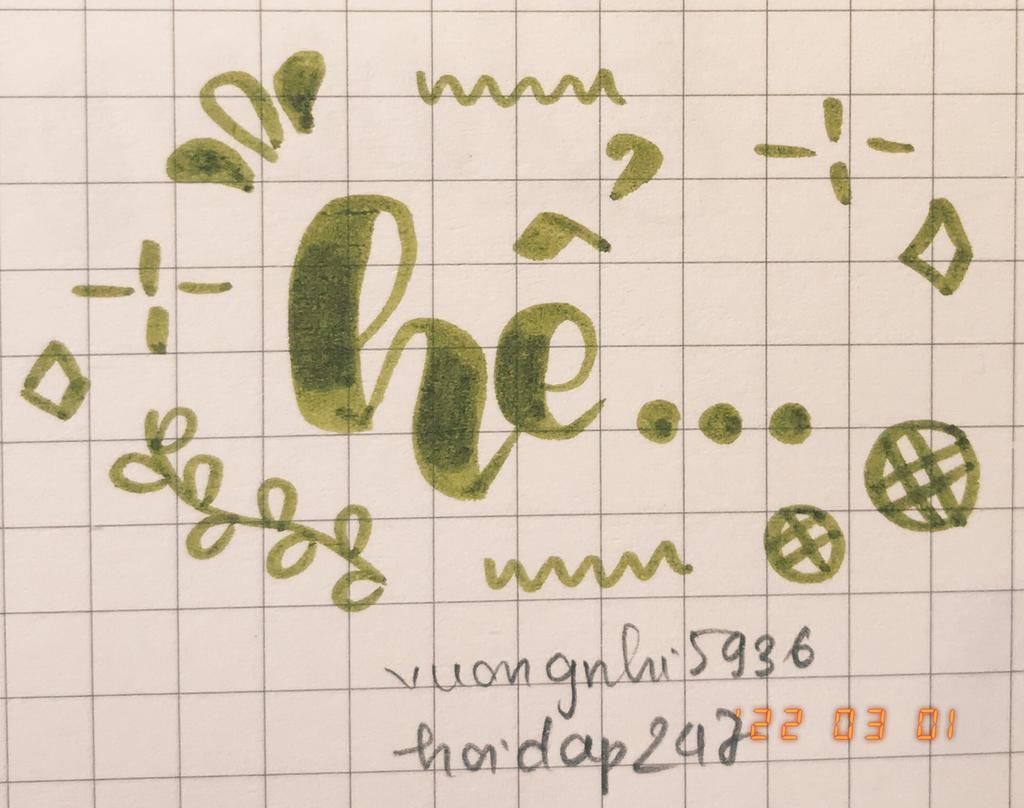 hể...
vuongnhi5936
hoidap247
'22 03 01